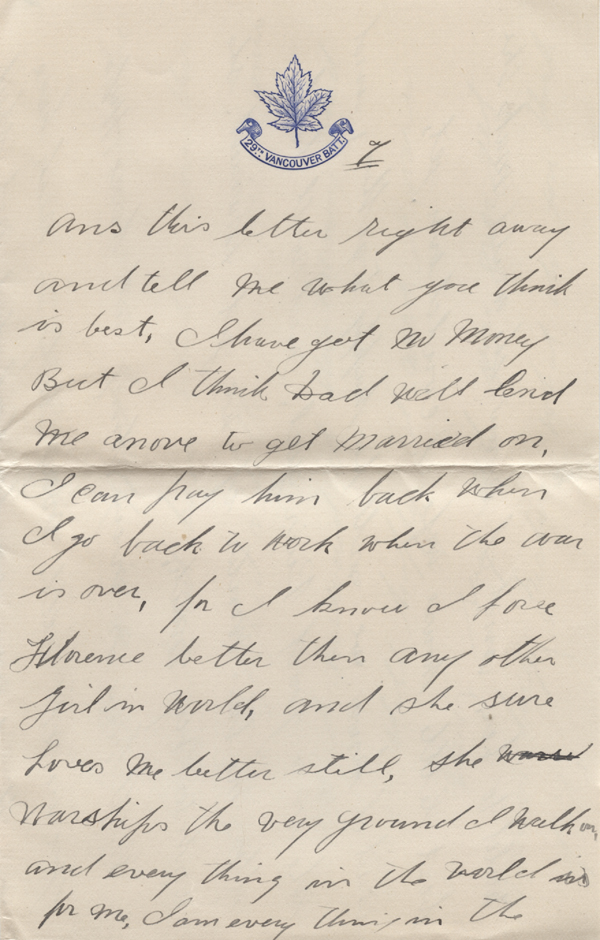 29TH VANCOUVER BATT.
7
ans this letter right away
and tell me what you think
is best, I have got no Money
But I think Dad will lend
Me anove to get Married on,
I can pay him back when
I go back to work when the war
is over, for I know I love
Florence better then any other
Girl in World, and she sure
Loves Me better still, she
Warships the very ground I walk on,
and every thing in the world is
for me, I am every thing in the